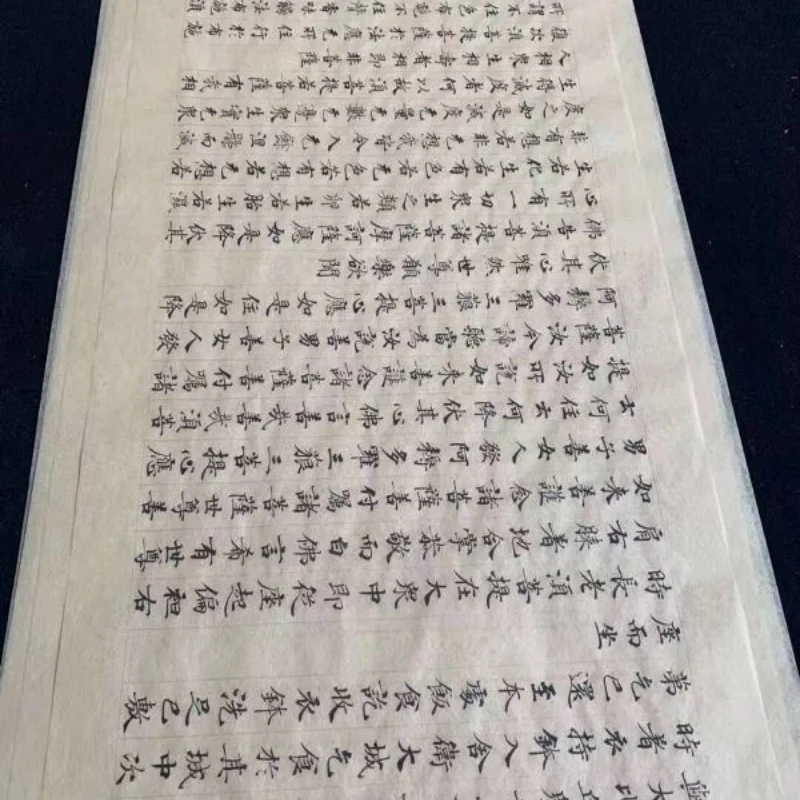 與大比丘
時著衣持鉢入舍衛大城乞食於其城中次
弟乞已還至本處飯食訖收衣鉢洗足已敷
座而坐
時長老須菩提在大眾中即從座起偏袒右
肩右膝著地合掌恭敬而白佛言希有世尊
如來善護念諸菩薩善付囑諸菩薩世尊善
男子善女人發阿耨多羅三藐三菩提心應
云何住云何降伏其心佛言善哉善哉須菩
提如汝所說如來善護念諸菩薩善付囑諸
菩薩汝今諦聽當為汝說善男子善女人發
阿耨多羅三藐三菩提心應如是住如是降
伏其心唯然世尊願樂欲聞
佛告須菩提諸菩薩摩訶薩應如是降伏其
心所有一切眾生之類若卵生若胎生若濕
生若化生若有色若无色若有想若无想若
非有想若非无想我皆令入无餘涅槃而滅
度之如是滅度无量无數无邊眾生實无眾
生得滅度者何以故須菩提若菩薩有我相
人相眾生相壽者相即非菩薩
復次須菩提菩薩於法應无所住行於布施
所謂不住色布施不住聲香味觸法布施須